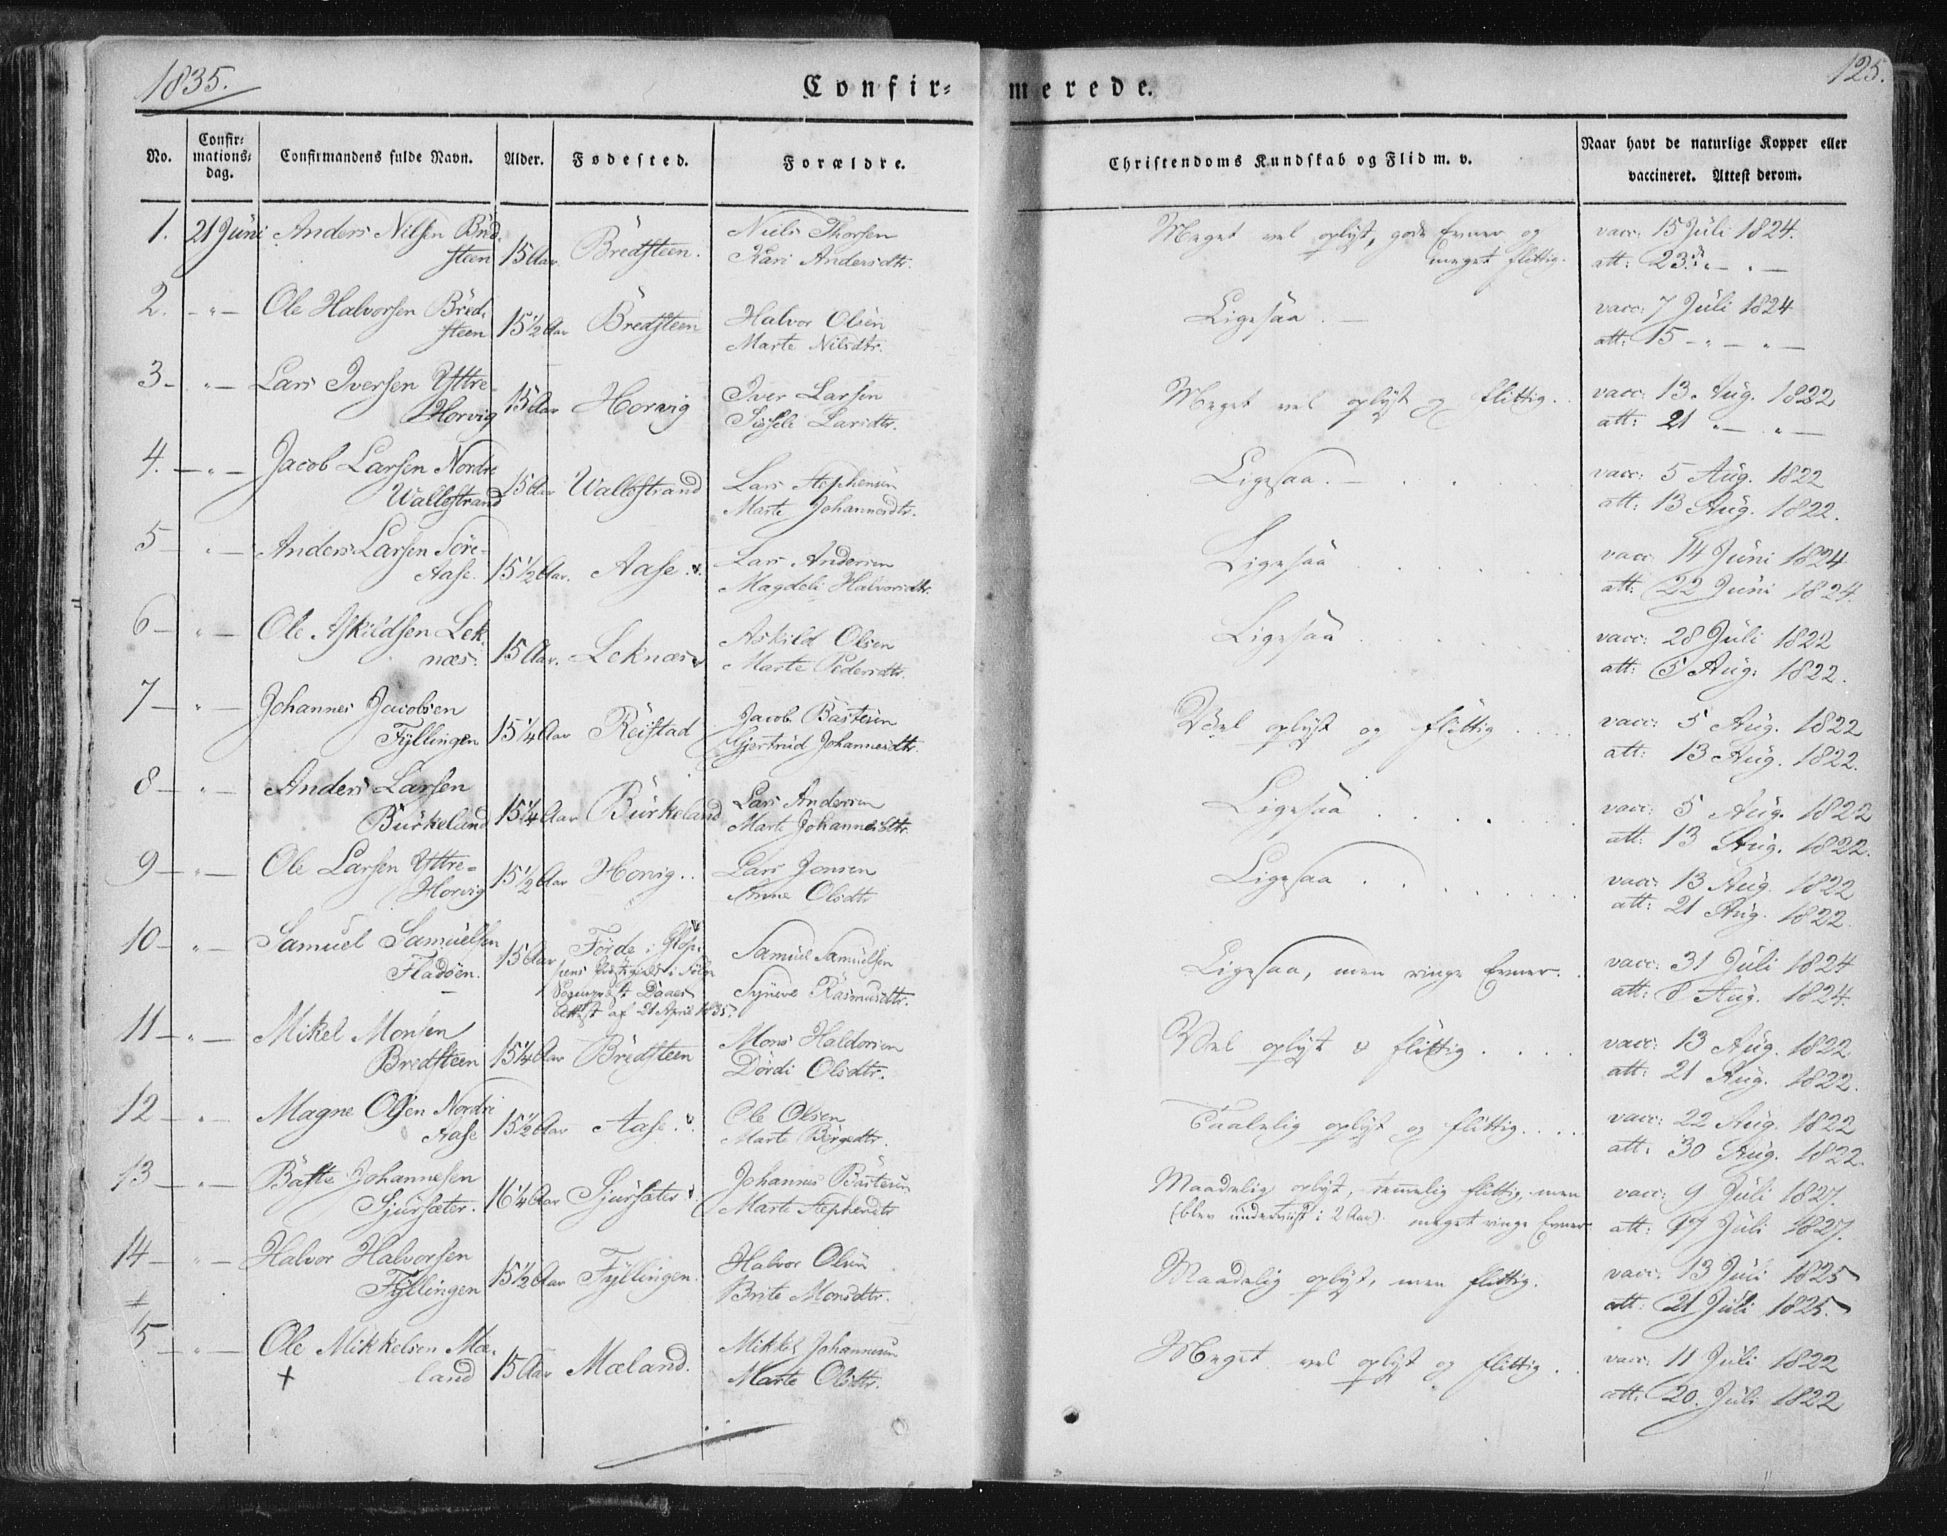 1835.
Confirmerede.
125.
No.
Confirmationsdag.
Confirmandens fulde Navn.
Alder.
Fødested.
Forældre.
Christendoms Kundskab og Flid m. v.
Naar havt de naturlige Kopper eller
vaccineret. Attest derom.
1. 21 Juni Anders Nilsen Bred-
steen 15 Aar. Bredsteen. Niels Thorsen
Kari Andersdtr. Meget vel oplyst, gode Evner og
meget flittig. vacc: 15 Juli 1824.
att: 23 " — " —
2. — " — Ole Halvorsen Bred-
steen 15 1/2 Aar Bredsteen Halvor Olsen
Marte Nilsdtr. Ligesaa. — vacc: 7 Juli 1824
att: 15 — " — " —
3 — " — Lars Iversen Yttre-
Horvig 15 Aar Horvig Iver Larsen
Sissele Larsdtr. Meget vel oplyst og flittig. vacc: 13 Aug. 1822
att: 21 " — " —
4. — " — Jacob Larsen Nordre
Wallestrand 15 Aar Wallestrand Lars Stephensen
Marte Johannesdtr. Ligesaa. — vacc: 5 Aug. 1822
att: 13 Aug. 1822.
5 — " — Anders Larsen Søre-
Aase. 15 1/2 Aar. Aase. Lars Andersen
Magdeli Halvorsdtr. Ligesaa vacc: 14 Juni 1824
att: 22 Juni 1824.
6 — " — Ole Askildsen Lek-
næs. 15 Aar. Leknæs Askild Olsen
Marte Pedersdtr. Ligesaa vacc: 28 Juli 1822
att: 5 Aug. 1822.
7 — " — Johannes Jacobsen
Fyllingen 15 1/4 Aar Reistad Jacob Bastesen
Gjertrud Johannesdtr. Vel oplyst og flittig vacc: 5 Aug. 1822
att: 13 Aug. 1822.
8 — " — Anders Larsen
Burkeland 15 1/4 Aar Burkeland Lars Andersen
Marte Johannesdtr. Ligesaa vacc: 5 Aug. 1822
att: 13 Aug. 1822.
9 — " — Ole Larsen Yttre-
Horvig 15 1/2 Aar Horvig. Lars Jonsen
Anne Olsdtr. Ligesaa vacc: 13 Aug. 1822
att: 21 Aug. 1822.
10 — " — Samuel Samuelsen
Fladøen. 15 Aar Førde i
Sogneprest Daaes
Attest af 21 April 1835. Samuel Samuelsen
Syneve Rasmusdtr. Ligesaa, men ringe Evner. vacc: 31 Juli 1824
att: 8 Aug. 1824.
11 — " — Mikel Monsen
Bredsteen 15 1/4 Aar Bredsteen Mons Haldorsen
Dördi Olsdtr. Vel oplyst & flittig vacc: 13 Aug. 1822
att: 21 Aug. 1822.
12 — " — Magne Olsen Nordre
Aase 15 1/2 Aar Aase. Ole Olsen
Marte Börgedtr. Taalelig oplyst og flittig vacc: 22 Aug. 1822
att: 30 Aug. 1822.
13 — " — Baste Johannesen
Sjursæter. 16 1/4 Aar Sjursæter Johannes Bastesen
Marte Stephensdtr Maadelig oplyst, temmelig flittig, men
(blev underviist i 2 Aar). meget ringe Evner vacc: 9 Juli 1827.
att: 17 Juli 1827.
14 — " — Halvor Halvorsen
Fyllingen 15 1/2 Aar Fyllingen. Halvor Olsen
Brite Monsdtr. Maadelig oplyst, men flittig. vacc: 13 Juli 1825
att: 21 Juli 1825.
15 — " — Ole Mikkelsen Mæ-
land 15 Aar Mæland. Mikkel Johannesen
Marte Olsdtr. Meget vel oplyst og flittig vacc: 11 Juli 1822
att: 20. Juli 1822